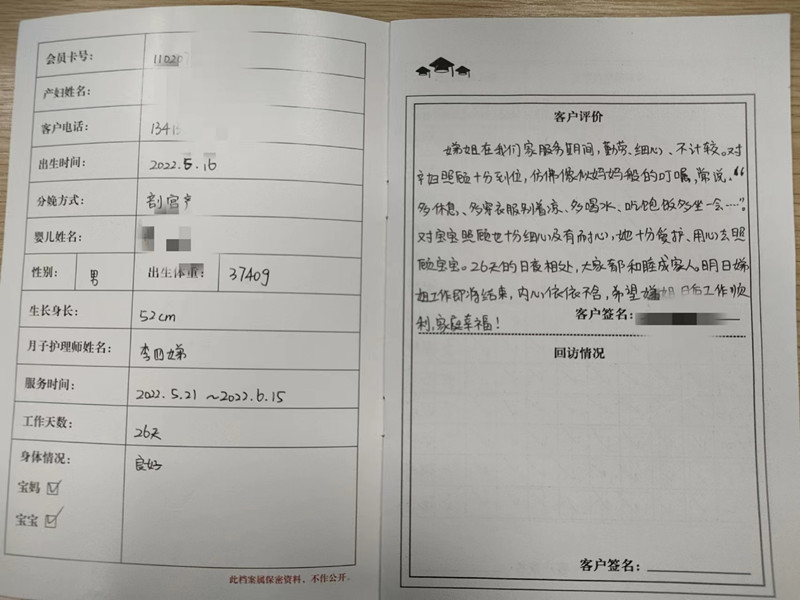 会员卡号： 11020
产妇姓名：
客户电话： 1341
出生时间： 2022.5.16
分娩方式： 剖宫产
婴儿姓名：
性别： 男 出生体重： 3740g
生长身长： 52cm
月子护理师姓名： 李四娣
服务时间： 2022.5.21 ~2022.6.15
工作天数： 26天
身体情况： 良好
宝妈 ☑
宝宝 ☑
此档案属保密资料，不作公开。
客户评价
娣姐在我们家服务期间，勤劳、细心、不计较。对
产妇照顾十分到位，仿佛像似妈妈般的叮嘱，常说，“
多休息、多穿衣服别着凉、多喝水、吃饱饭多坐一会……”。
对宝宝照顾也十分细心及有耐心，她十分爱护、用心去照
顾宝宝。26天的日夜相处，大家都和睦成家人。明日娣
姐工作即将结束，内心依依不舍，希望娣姐日后工作顺
利，家庭幸福！
客户签名：
回访情况
客户签名：